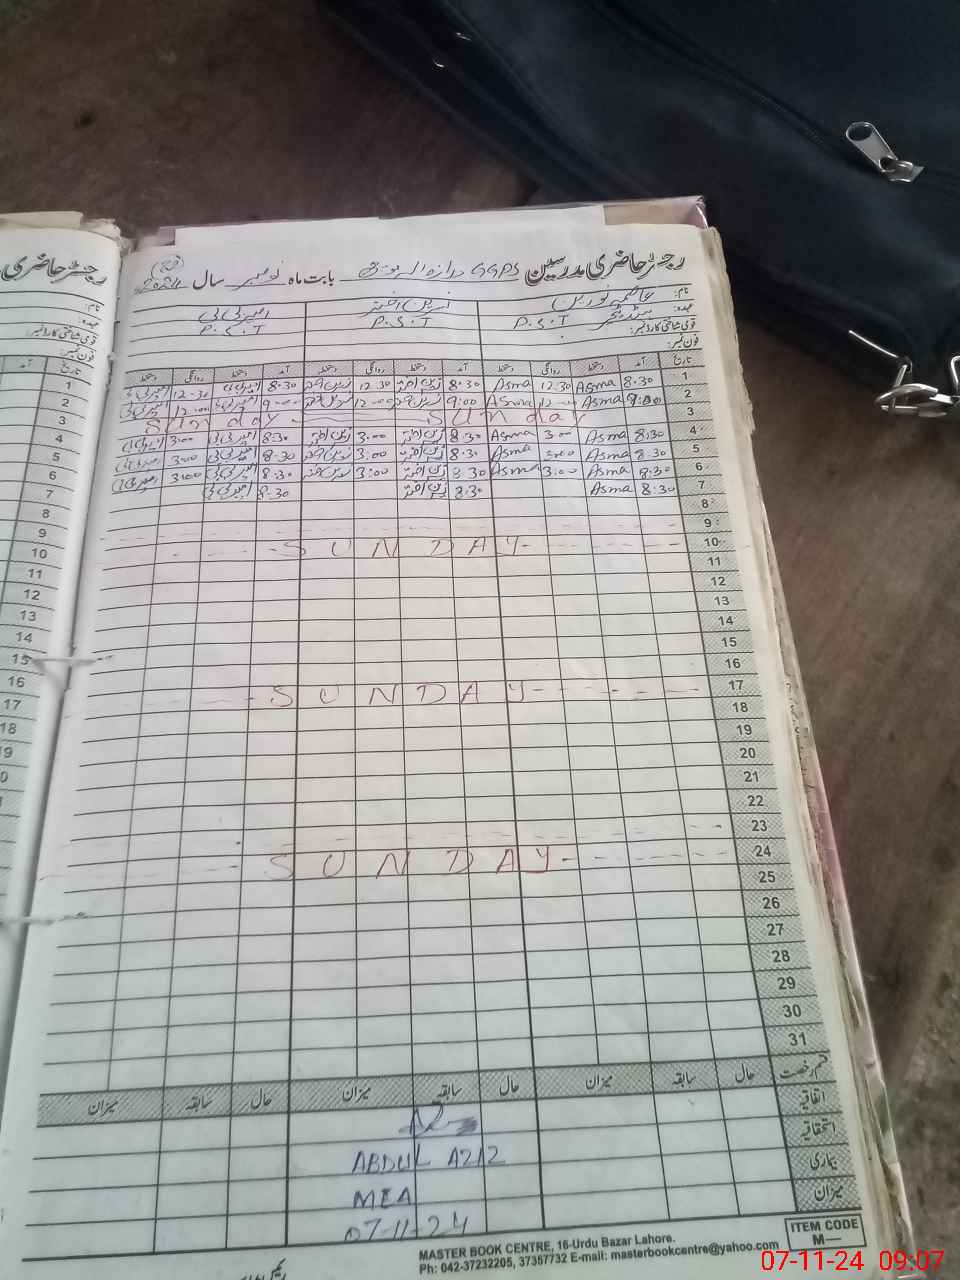 رجسٹر حاضری مدرسین GGPS بابت ماہ نومبر سال 2024
نام: عاصمہ نورین
عہدہ: P.S.T P.S.T P.S.T
قومی شناختی کارڈ نمبر:
فون نمبر:
تاریخ آمد دستخط روانگی دستخط آمد دستخط روانگی دستخط آمد دستخط روانگی دستخط
1 8:30 Asma 12:30 Asma 8:30 12:30 8:30 12:30
2 9:00 Asma 12:00 Asma 9:00 12:00 9:00 12:00
3 Sunday Sunday
4 8:30 Asma 3:00 Asma 8:30 3:00 8:30 3:00
5 8:30 Asma 3:00 Asma 8:30 3:00 8:30 3:00
6 8:30 Asma 3:00 Asma 8:30 3:00 8:30 3:00
7 8:30 Asma 8:30 8:30
8
9
10 SUNDAY
11
12
13
14
15
16
17 SUNDAY
18
19
20
21
22
23
24 SUNDAY
25
26
27
28
29
30
31
قسم رخصت حال سابقہ میزان حال سابقہ میزان حال سابقہ میزان
اتفاقیہ
استحقاقیہ
بیماری
میزان
ABDUL AZIZ
MEA
07-11-24
MASTER BOOK CENTRE, 16-Urdu Bazar Lahore.
Ph: 042-37232205, 37357732 E-mail: masterbookcentre@yahoo.com
ITEM CODE
M—
رجسٹر حاضری
نام:
عہدہ:
قومی شناختی کارڈ نمبر:
فون نمبر:
تاریخ آمد
1
2
3
4
5
6
7
8
9
10
11
12
13
14
15
16
17
18
07-11-24 09:07